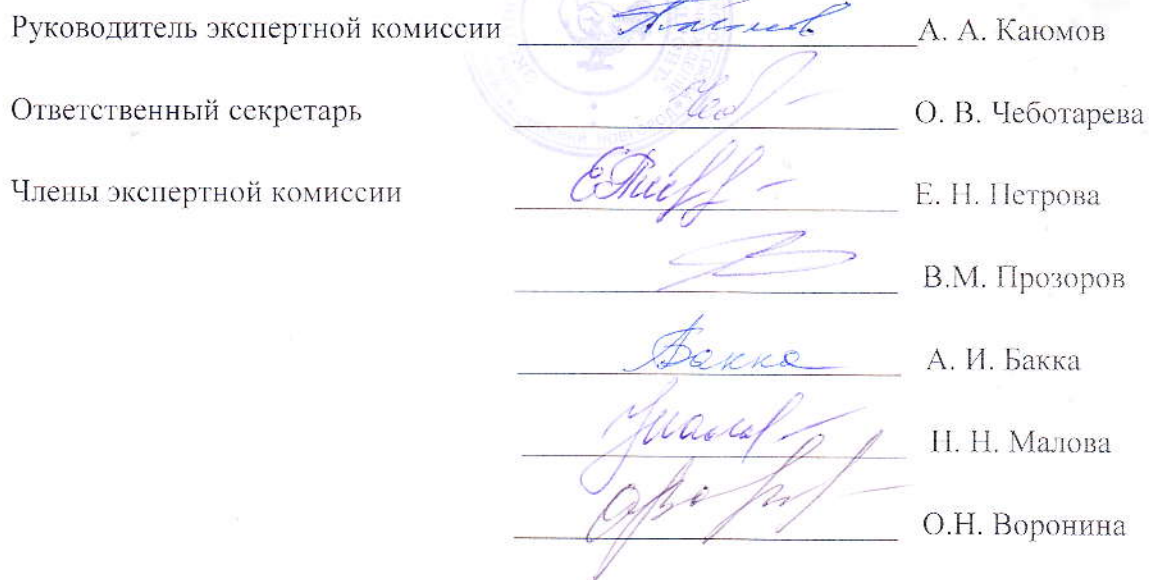 Руководитель экспертной комиссии А. А. Каюмов
Ответственный секретарь О. В. Чеботарева
Члены экспертной комиссии Е. Н. Петрова
В.М. Прозоров
Бакка А. И. Бакка
Н. Н. Малова
О.Н. Воронина